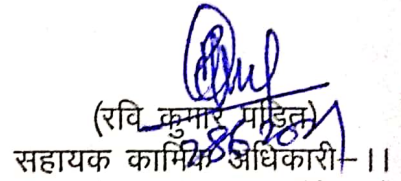 (रवि कुमार पंडित)
सहायक कार्मिक अधिकारी–।।